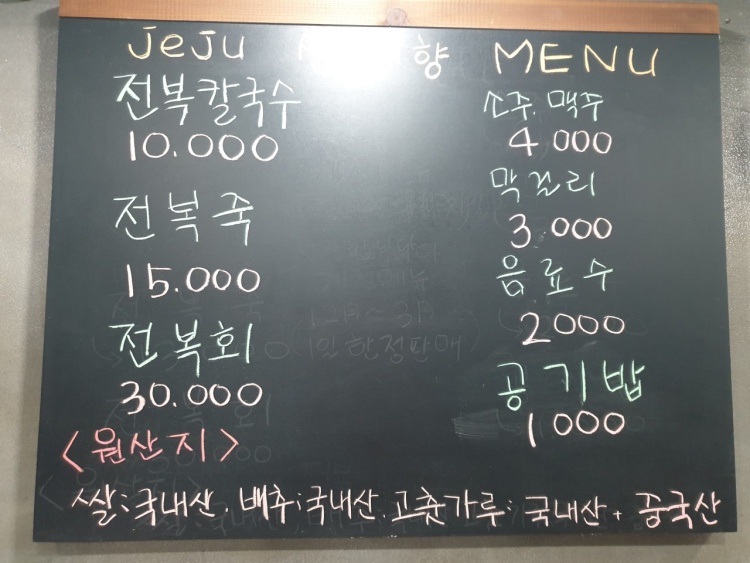 JeJu 향 MENU
전복칼국수
10.000
전복죽
15.000
전복회
30.000
소주. 맥주
4 000
막걸리
3 000
음료수
2000
공기밥
1000
<원산지>
쌀:국내산. 배추:국내산. 고춧가루: 국내산 + 중국산